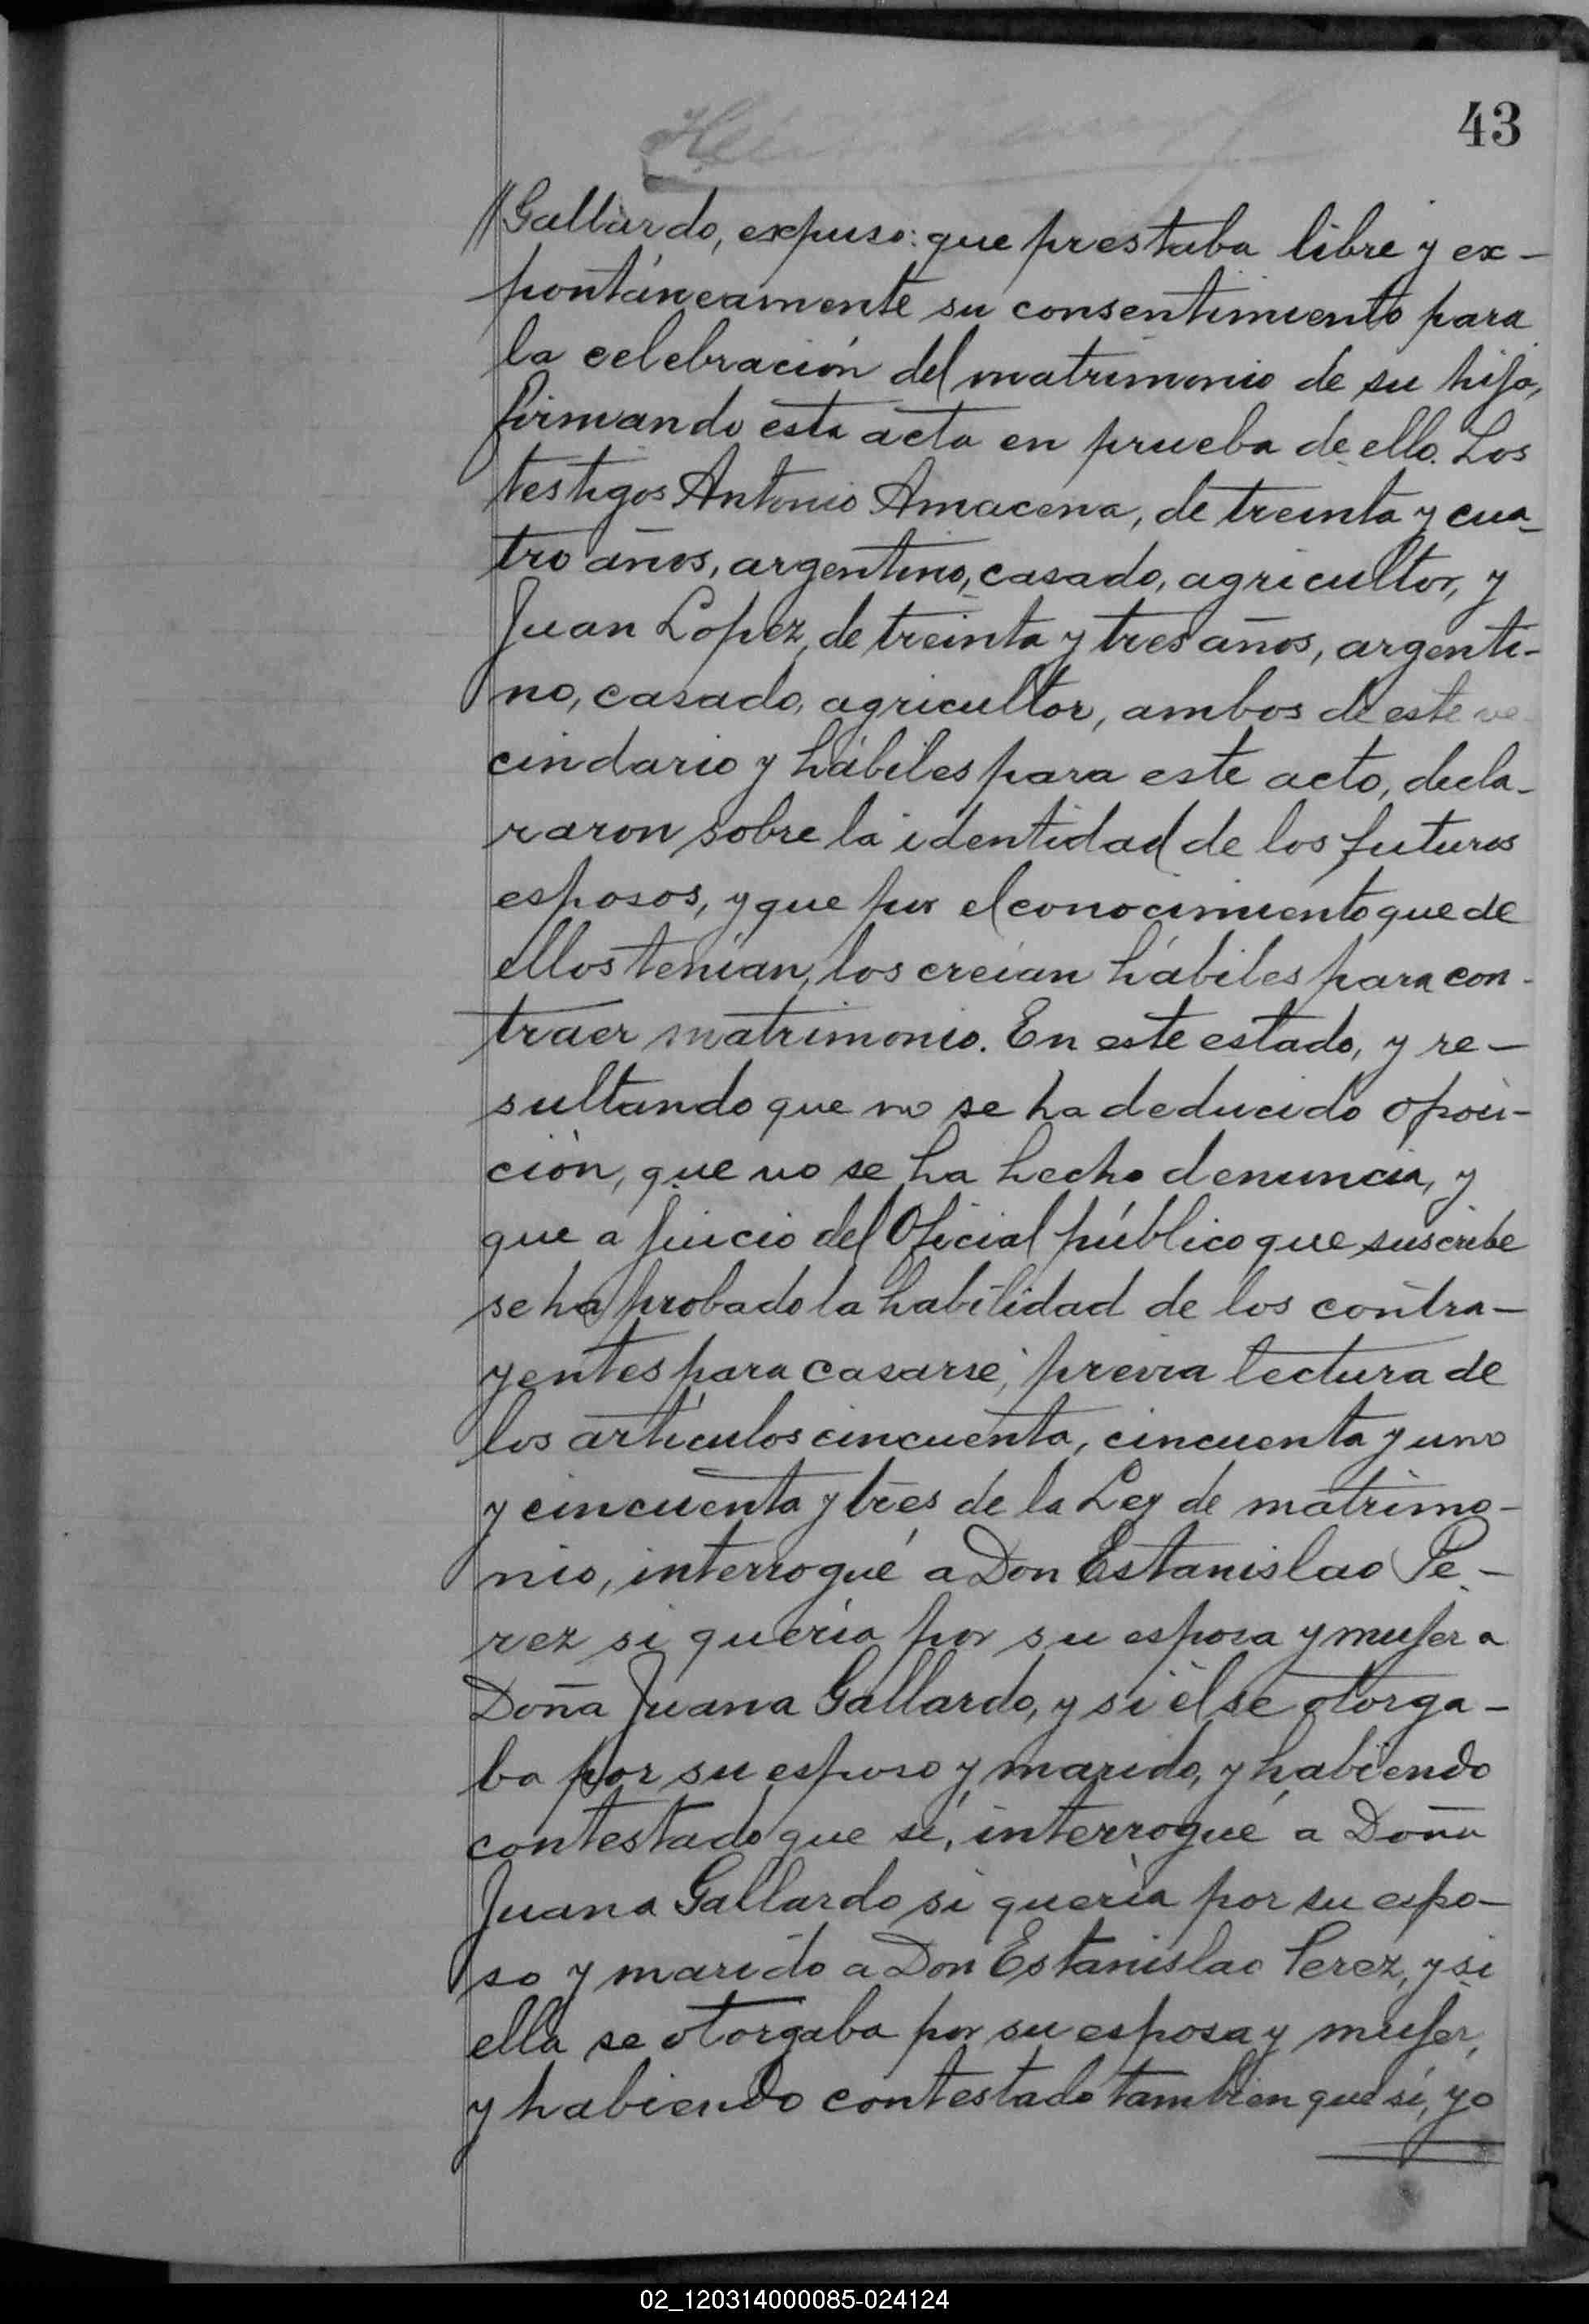 43
Gallardo, expuso: que prestaba libre y ex-
pontáneamente su consentimiento para
la celebración del matrimonio de su hija,
firmando esta acta en prueba de ello. Los
testigos Antonio Amacena, de treinta y cua-
tro años, argentino, casado, agricultor, y
Juan Lopez, de treinta y tres años, argenti-
no, casado, agricultor, ambos de este ve
cindario y hábiles para este acto, decla-
raron sobre la identidad de los futuros
esposos, y que por el conocimiento que de
ellos tenían, los creían hábiles para con-
traer matrimonio. En este estado, y re-
sultando que no se ha deducido oposi-
ción, que no se ha hecho denuncia, y
que a juicio del Oficial público que suscribe
se ha probado la habilidad de los contra-
yentes para casarse, previa lectura de
los artículos cincuenta, cincuenta y uno
y cincuenta y tres de la Ley de matrimo-
nio, interrogué a Don Estanislao Pe-
rez si quería por su esposa y mujer a
Doña Juana Gallardo, y si él se otorga-
ba por su esposo y marido, y habiendo
contestado que sí, interrogué a Doña
Juana Gallardo si quería por su espo-
so y marido a Don Estanislao Perez, y si
ella se otorgaba por su esposa y mujer,
y habiendo contestado tambien que sí, yo
02_120314000085-024124